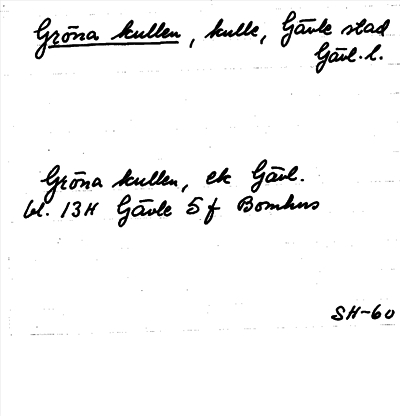 Gröna kullen, kulle, Gävle stad
Gävl. l.
Gröna kullen, ek Gävl.
bl. 13H Gävle 5 f Bomhus
SH-60